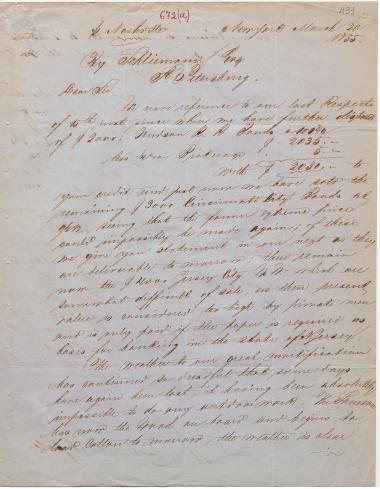 672(a)
433
p Nashville New York March 20
1855.
Hy Schliemann Esq
St Petersburg.
Dear Sir
We now reference to our last Respects
of 15th inst since when we have further disposed
of $ 2000. Hudson R. R. Bonds
$ 2035.-
less Brokerage 5.-
with $ 2030.- to
your credit and just now we have sold the
remaining $ 2000 Cincinnati City Bonds
being that the former extreme price
could impossibly be made again; of these
we give you statement in our next as they
are deliverable to morrow; there remain
now the $ 2000 Jersey City which are
somewhat difficult of sale, as their present
value is considered too high by private men
and is only paid if the paper is required as
basis for banking in the state of N Jersey.
The weather to our great mortification
has continued so dreadful that some days
have again been lost, it having been absolutely
impossible to do any outdoor work. The
has now the Wood on board and begins to
load Cotton to morrow, the weather is clear